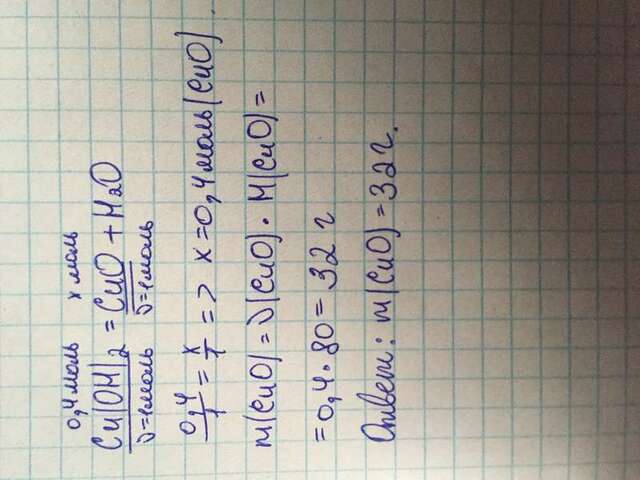 0,4 моль x моль
Cu(OH)2 = CuO + H2O
ν=1моль ν=1моль
0,4/1 = x/1 => x = 0,4 моль (CuO)
m(CuO) = ν(CuO) · M(CuO) =
= 0,4 · 80 = 32 г
Ответ: m(CuO) = 32 г.